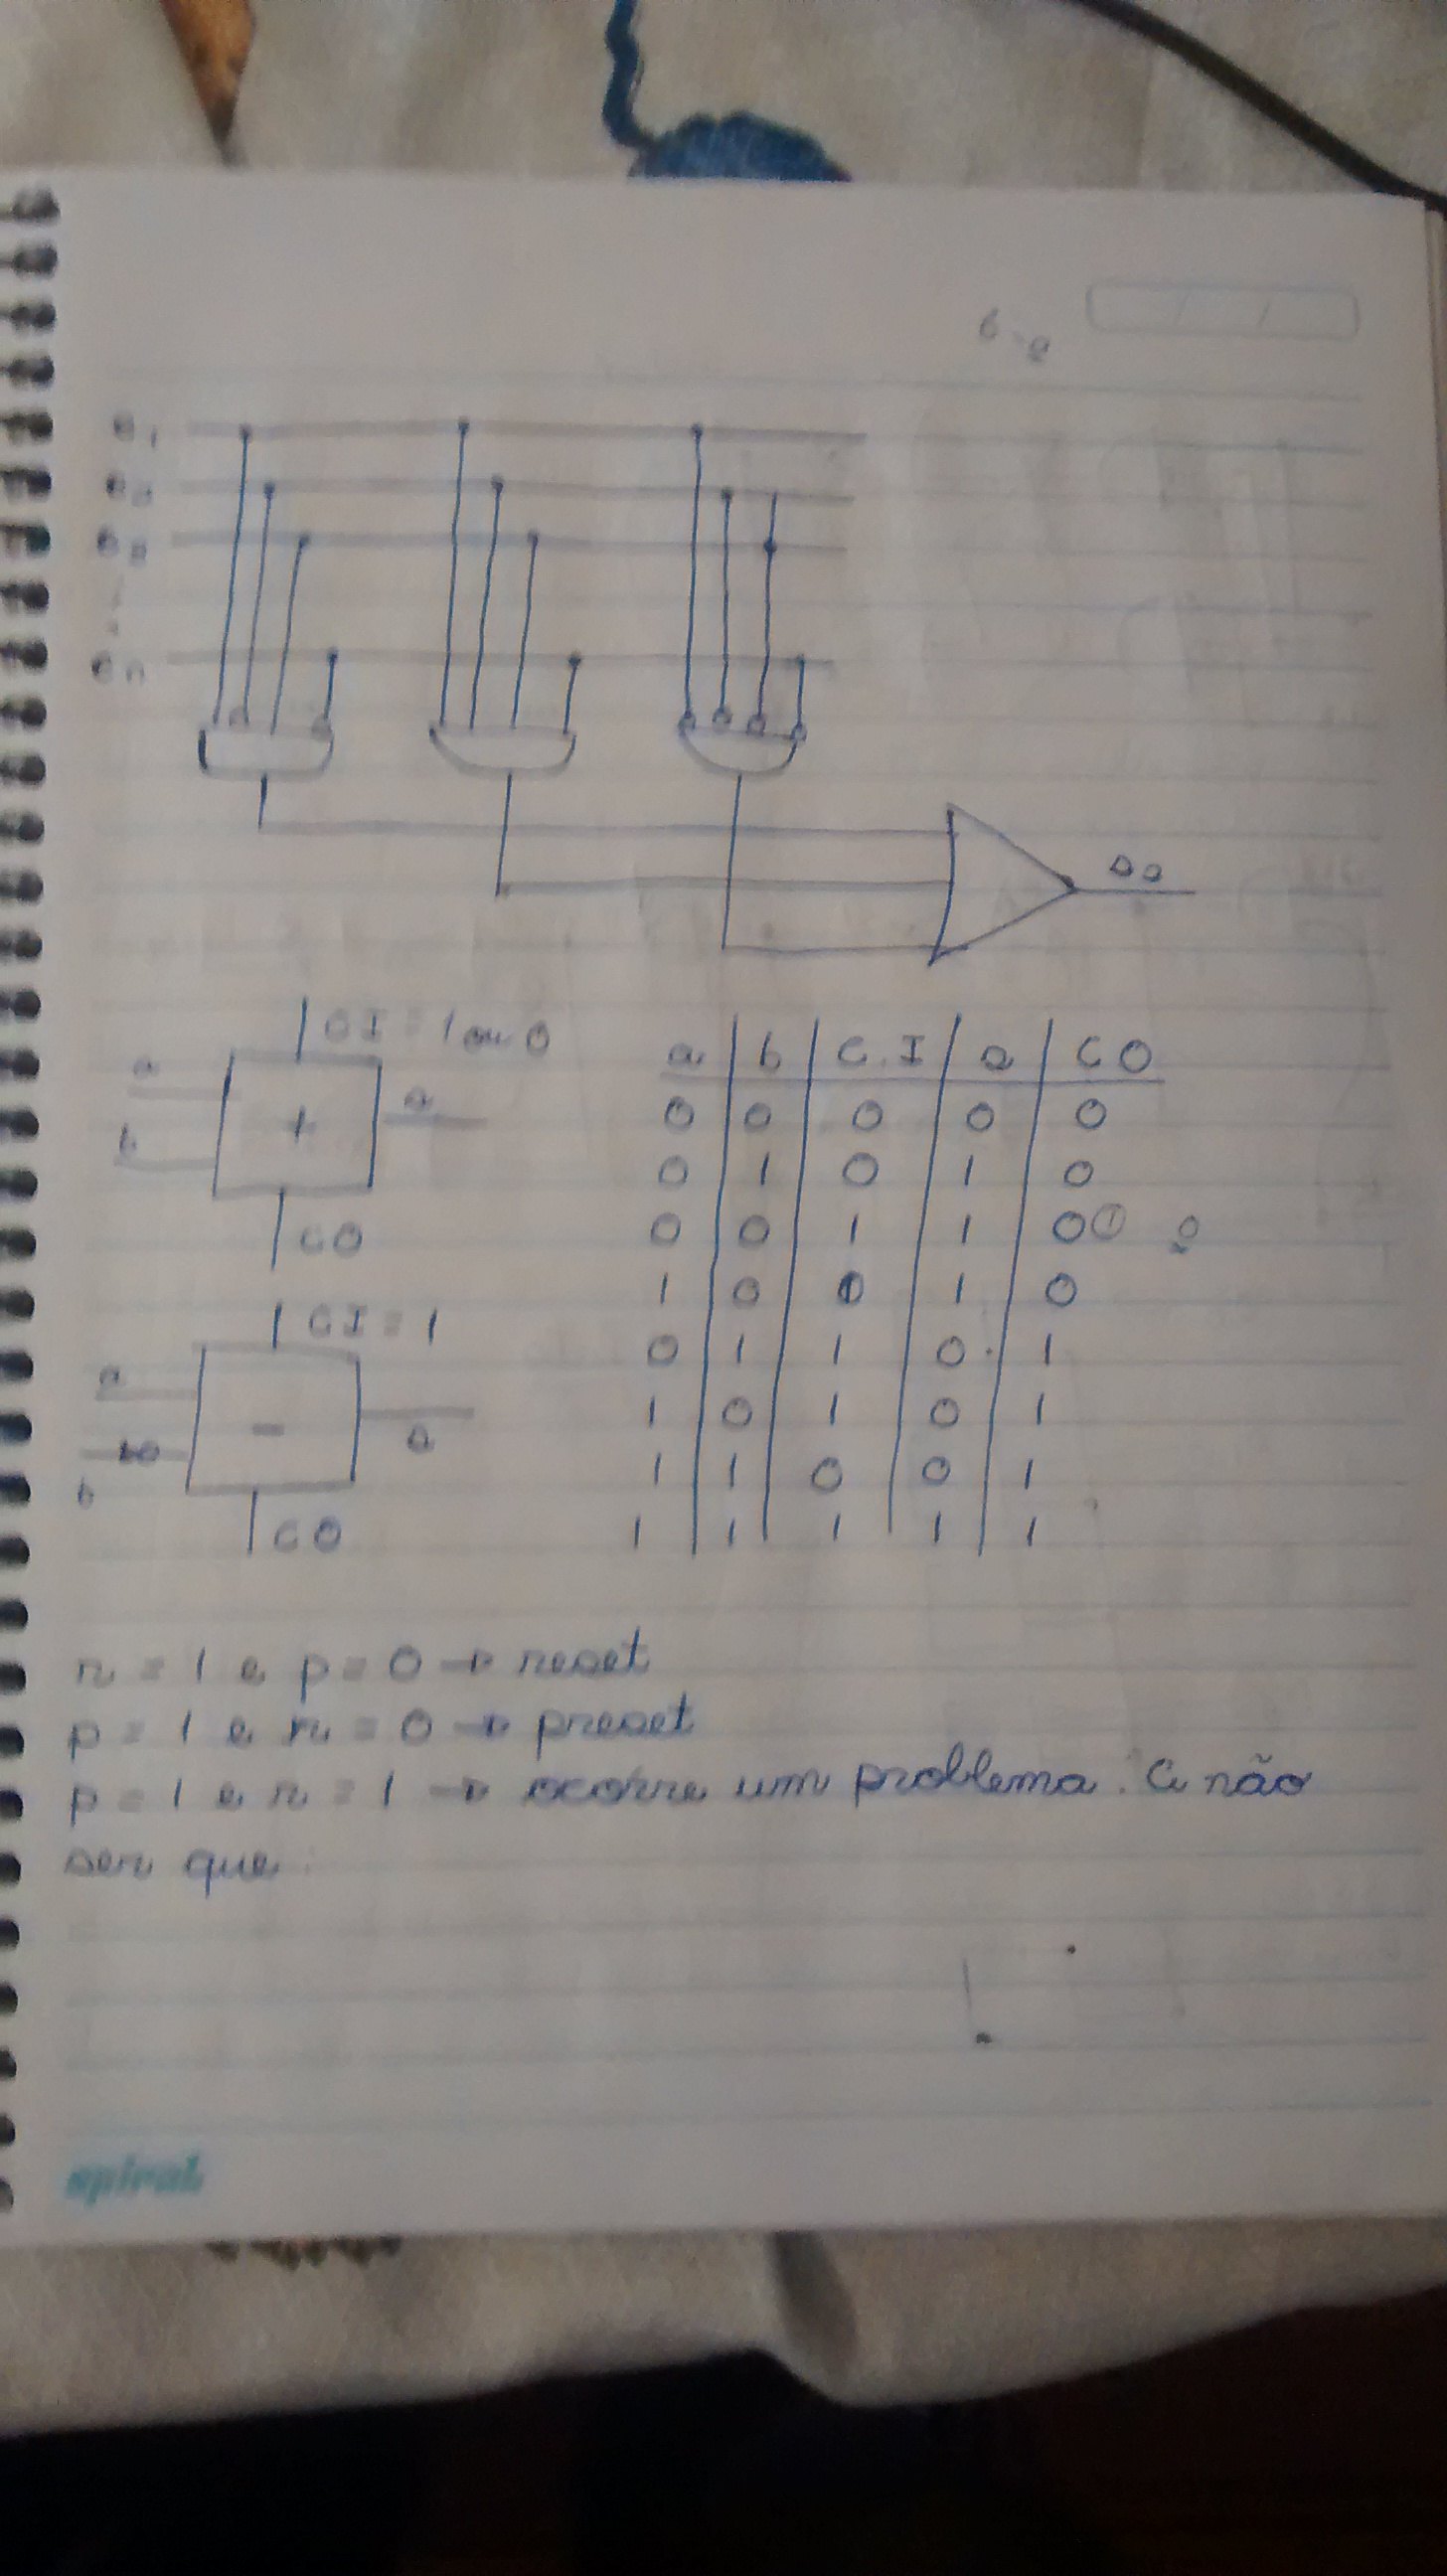 e1
e2
e3
en
s0
CI = 1 ou 0
a
b
+
s
CO
CI = 1
a
b
-
s
CO
a b C.I s CO
0 0 0 0 0
0 1 0 1 0
0 0 1 1 0
1 0 0 1 0
0 1 1 0 1
1 0 1 0 1
1 1 0 0 1
1 1 1 1 1
r = 1 e p = 0 → reset
p = 1 e r = 0 → preset
p = 1 e r = 1 → ocorre um problema. A não
ser que:
spiral